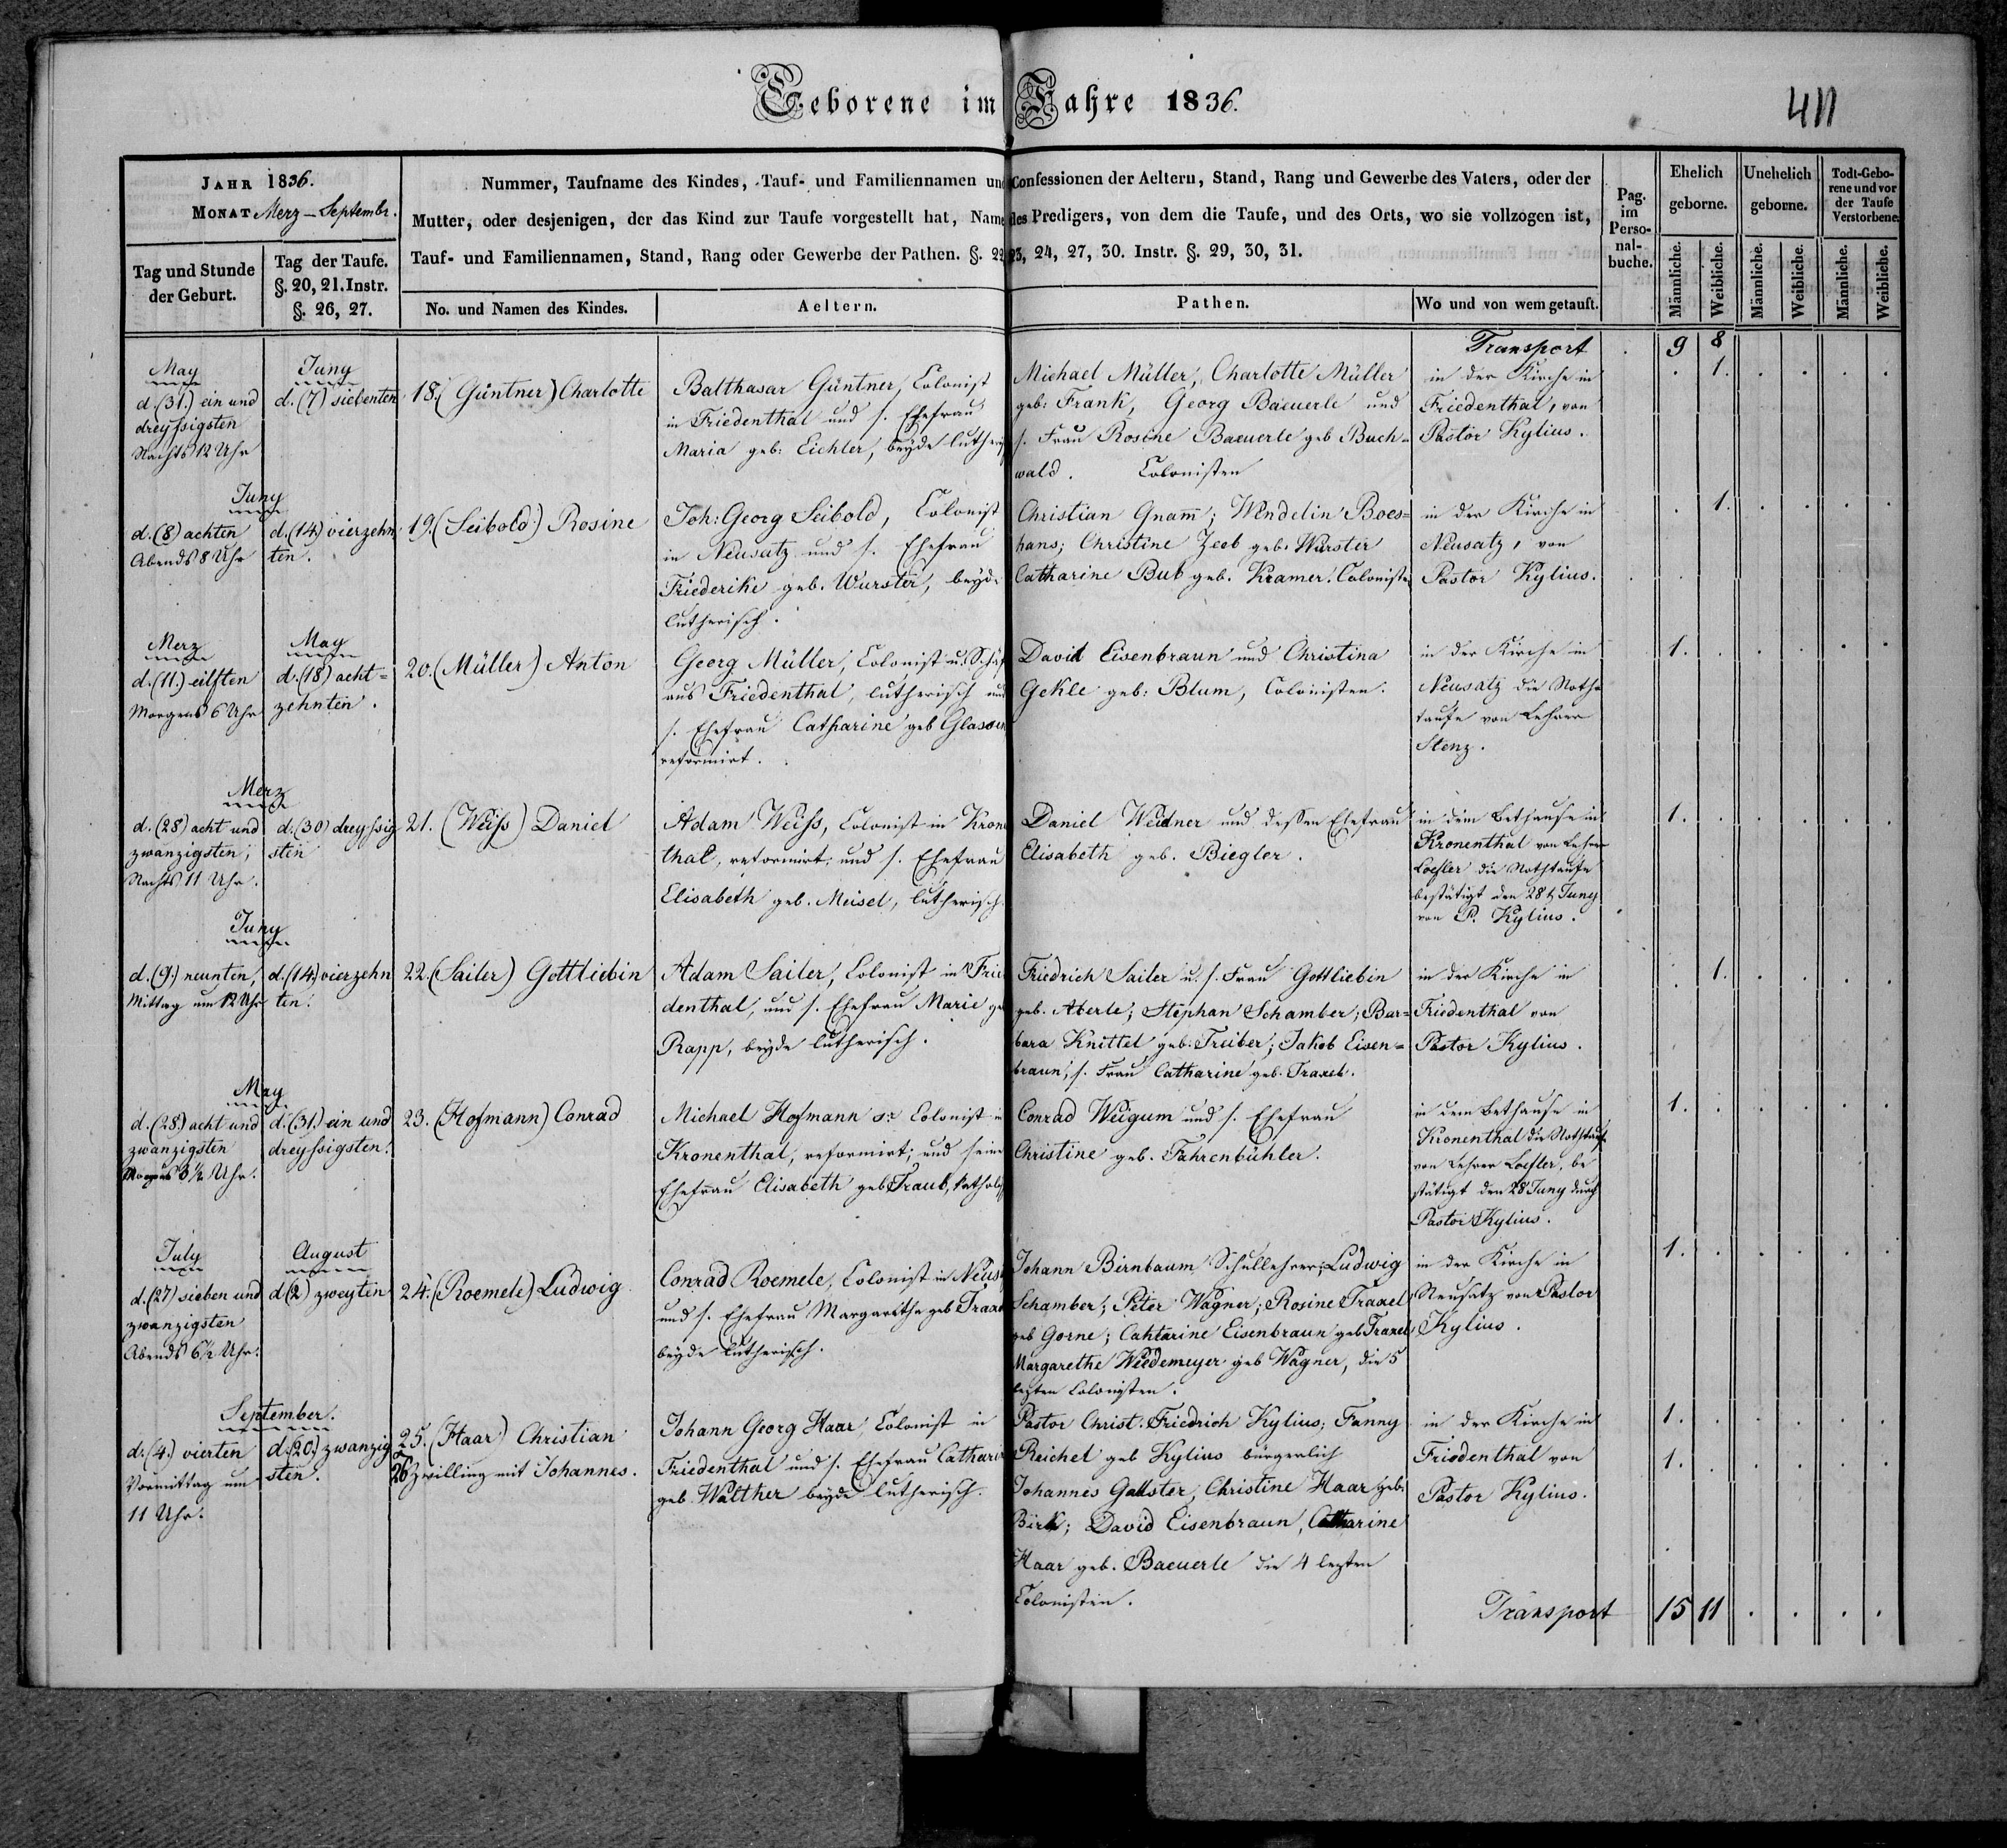 Geborene im Jahre 1836.
411
JAHR 1836.
MONAT Merz – Septembr.
Tag und Stunde
der Geburt.
Tag der Taufe.
§. 20, 21. Instr.
§. 26, 27.
Nummer, Taufname des Kindes, Tauf- und Familiennamen und Confessionen der Aeltern, Stand, Rang und Gewerbe des Vaters, oder der
Mutter, oder desjenigen, der das Kind zur Taufe vorgestellt hat, Name des Predigers, von dem die Taufe, und des Orts, wo sie vollzogen ist,
Tauf- und Familiennamen, Stand, Rang oder Gewerbe der Pathen. §. 22, 23, 24, 27, 30. Instr. §. 29, 30, 31.
No. und Namen des Kindes.
Aeltern.
Pathen.
Wo und von wem getauft.
Pag.
im
Perso-
nal-
buche.
Ehelich
geborne.
Unehelich
geborne.
Todt-Gebo-
rene und vor
der Taufe
Verstorbene.
Männliche.
Weibliche.
Männliche.
Weibliche.
Männliche.
Weibliche.
Transport
9 8
May
d. (31.) ein und
dreyssigsten
Nachts 12 Uhr
Juny
d. (7) siebenten
18. (Güntner) Charlotte
Balthasar Güntner, Colonist
in Friedenthal und s. Ehefrau
Maria geb: Eichler, beyde lutherisch
Michael Müller, Charlotte Müller
geb: Frank, Georg Baeuerle und
s. Frau Rosine Baeuerle geb Buch=
wald. Colonisten
in der Kirche in
Friedenthal, von
Pastor Kylius.
1.
Juny
d. (8) achten
Abends 8 Uhr
d. (14) vierzehn
ten.
19. (Seibold) Rosine
Joh: Georg Seibold, Colonist
in Neusatz und s. Ehefrau
Friederike geb. Wurster, beyde
lutherisch.
Christian Gnam̄; Wendelin Boes=
hans; Christine Zeeb geb. Wurster
Catharine Bub geb. Kramer. Colonisten
in der Kirche in
Neusatz, von
Pastor Kylius.
1.
Merz
d. (11.) eilften
Morgens 6 Uhr
May
d. (18) acht=
zehnten.
20. (Müller) Anton
Georg Müller, Colonist u. Schäf
aus Friedenthal, lutherisch und
s. Ehefrau Catharine geb
reformirt.
David Eisenbraun und Christina
Gekle geb: Blum, Colonisten.
in der Kirche in
Neusatz die Noth=
taufe von Lehrer
Stenz.
1.
Merz
d. (28) acht und
zwanzigsten,
Nachts 11 Uhr.
d. (30) dreyssig
sten
21. (Weiss) Daniel
Adam Weiss, Colonist in Kronen
thal, reformirt; und s. Ehefrau
Elisabeth geb. Meisel, lutherisch
Daniel Weidner und dessen Ehefrau
Elisabeth geb. Biegler.
in dem Bethause in
Kronenthal von Lehrer
Loefler die Nothtaufe
bestätigt den 28t Juny
von P. Kylius.
1.
Juny
d. (9.) neunten,
Mittag um 12 Uhr
d. (14.) vierzehn
ten.
22. (Sailer) Gottliebin
Adam Sailer, Colonist in Frie
denthal, und s. Ehefrau Marie geb
Rapp, beyde lutherisch.
Friedrich Sailer u. s. Frau Gottliebin
geb. Aberle; Stephan Schamber; Bar=
bara Knittel geb: Treiber; Jakob Eisen=
braun; s. Frau Catharine geb. Traxel.
in der Kirche in
Friedenthal von
Pastor Kylius.
1.
May
d. (28.) acht und
zwanzigsten
Morgens 3½ Uhr.
d. (31.) ein und
dreyssigsten.
23. (Hofmann) Conrad
Michael Hofmann sr. Colonist in
Kronenthal, reformirt; und seine
Ehefrau Elisabeth geb Traub, kathol
Conrad Weigum und s. Ehefrau
Christine geb. Fahrenbühler.
in dem Bethause in
Kronenthal die Nothtauf
von Lehrer Loefler, be
stätigt den 28 Juny durch
Pastor Kylius.
1.
July
d. (27) sieben und
zwanzigsten
Abends 6½ Uhr.
August
d (2) zweyten
24. (Roemele) Ludwig
Conrad Roemele, Colonist in Neusatz
und s. Ehefrau Margarethe geb Traxel
beyde lutherisch.
Johann Birnbaum Schullehrer; Ludwig
Schamber; Peter Wagner; Rosine Traxel
geb Gorne; Cahtarine Eisenbraun geb Traxel
Margarethe Wiedemeyer geb Wagner, die 5
lezten Colonisten.
in der Kirche in
Neusatz von Pastor
Kylius.
1.
September.
d: (4.) vierten
Vormittag um
11 Uhr.
d. (20.) zwanzig
sten.
25. (Haar) Christian
26 Zwilling mit Johannes.
Johann Georg Haar, Colonist in
Friedenthal und s. Ehefrau Catharin
geb. Walther beyde lutherisch.
Pastor Christ: Friedrich Kylius; Fanny
Reichel geb Kylius bürgerlich
Johannes Gallster, Christine Haar geb.
Birk; David Eisenbraun, Catharine
Haar geb. Baeuerle die 4 lezten
Colonisten.
in der Kirche in
Friedenthal von
Pastor Kylius.
1.
1.
Transport 15 11